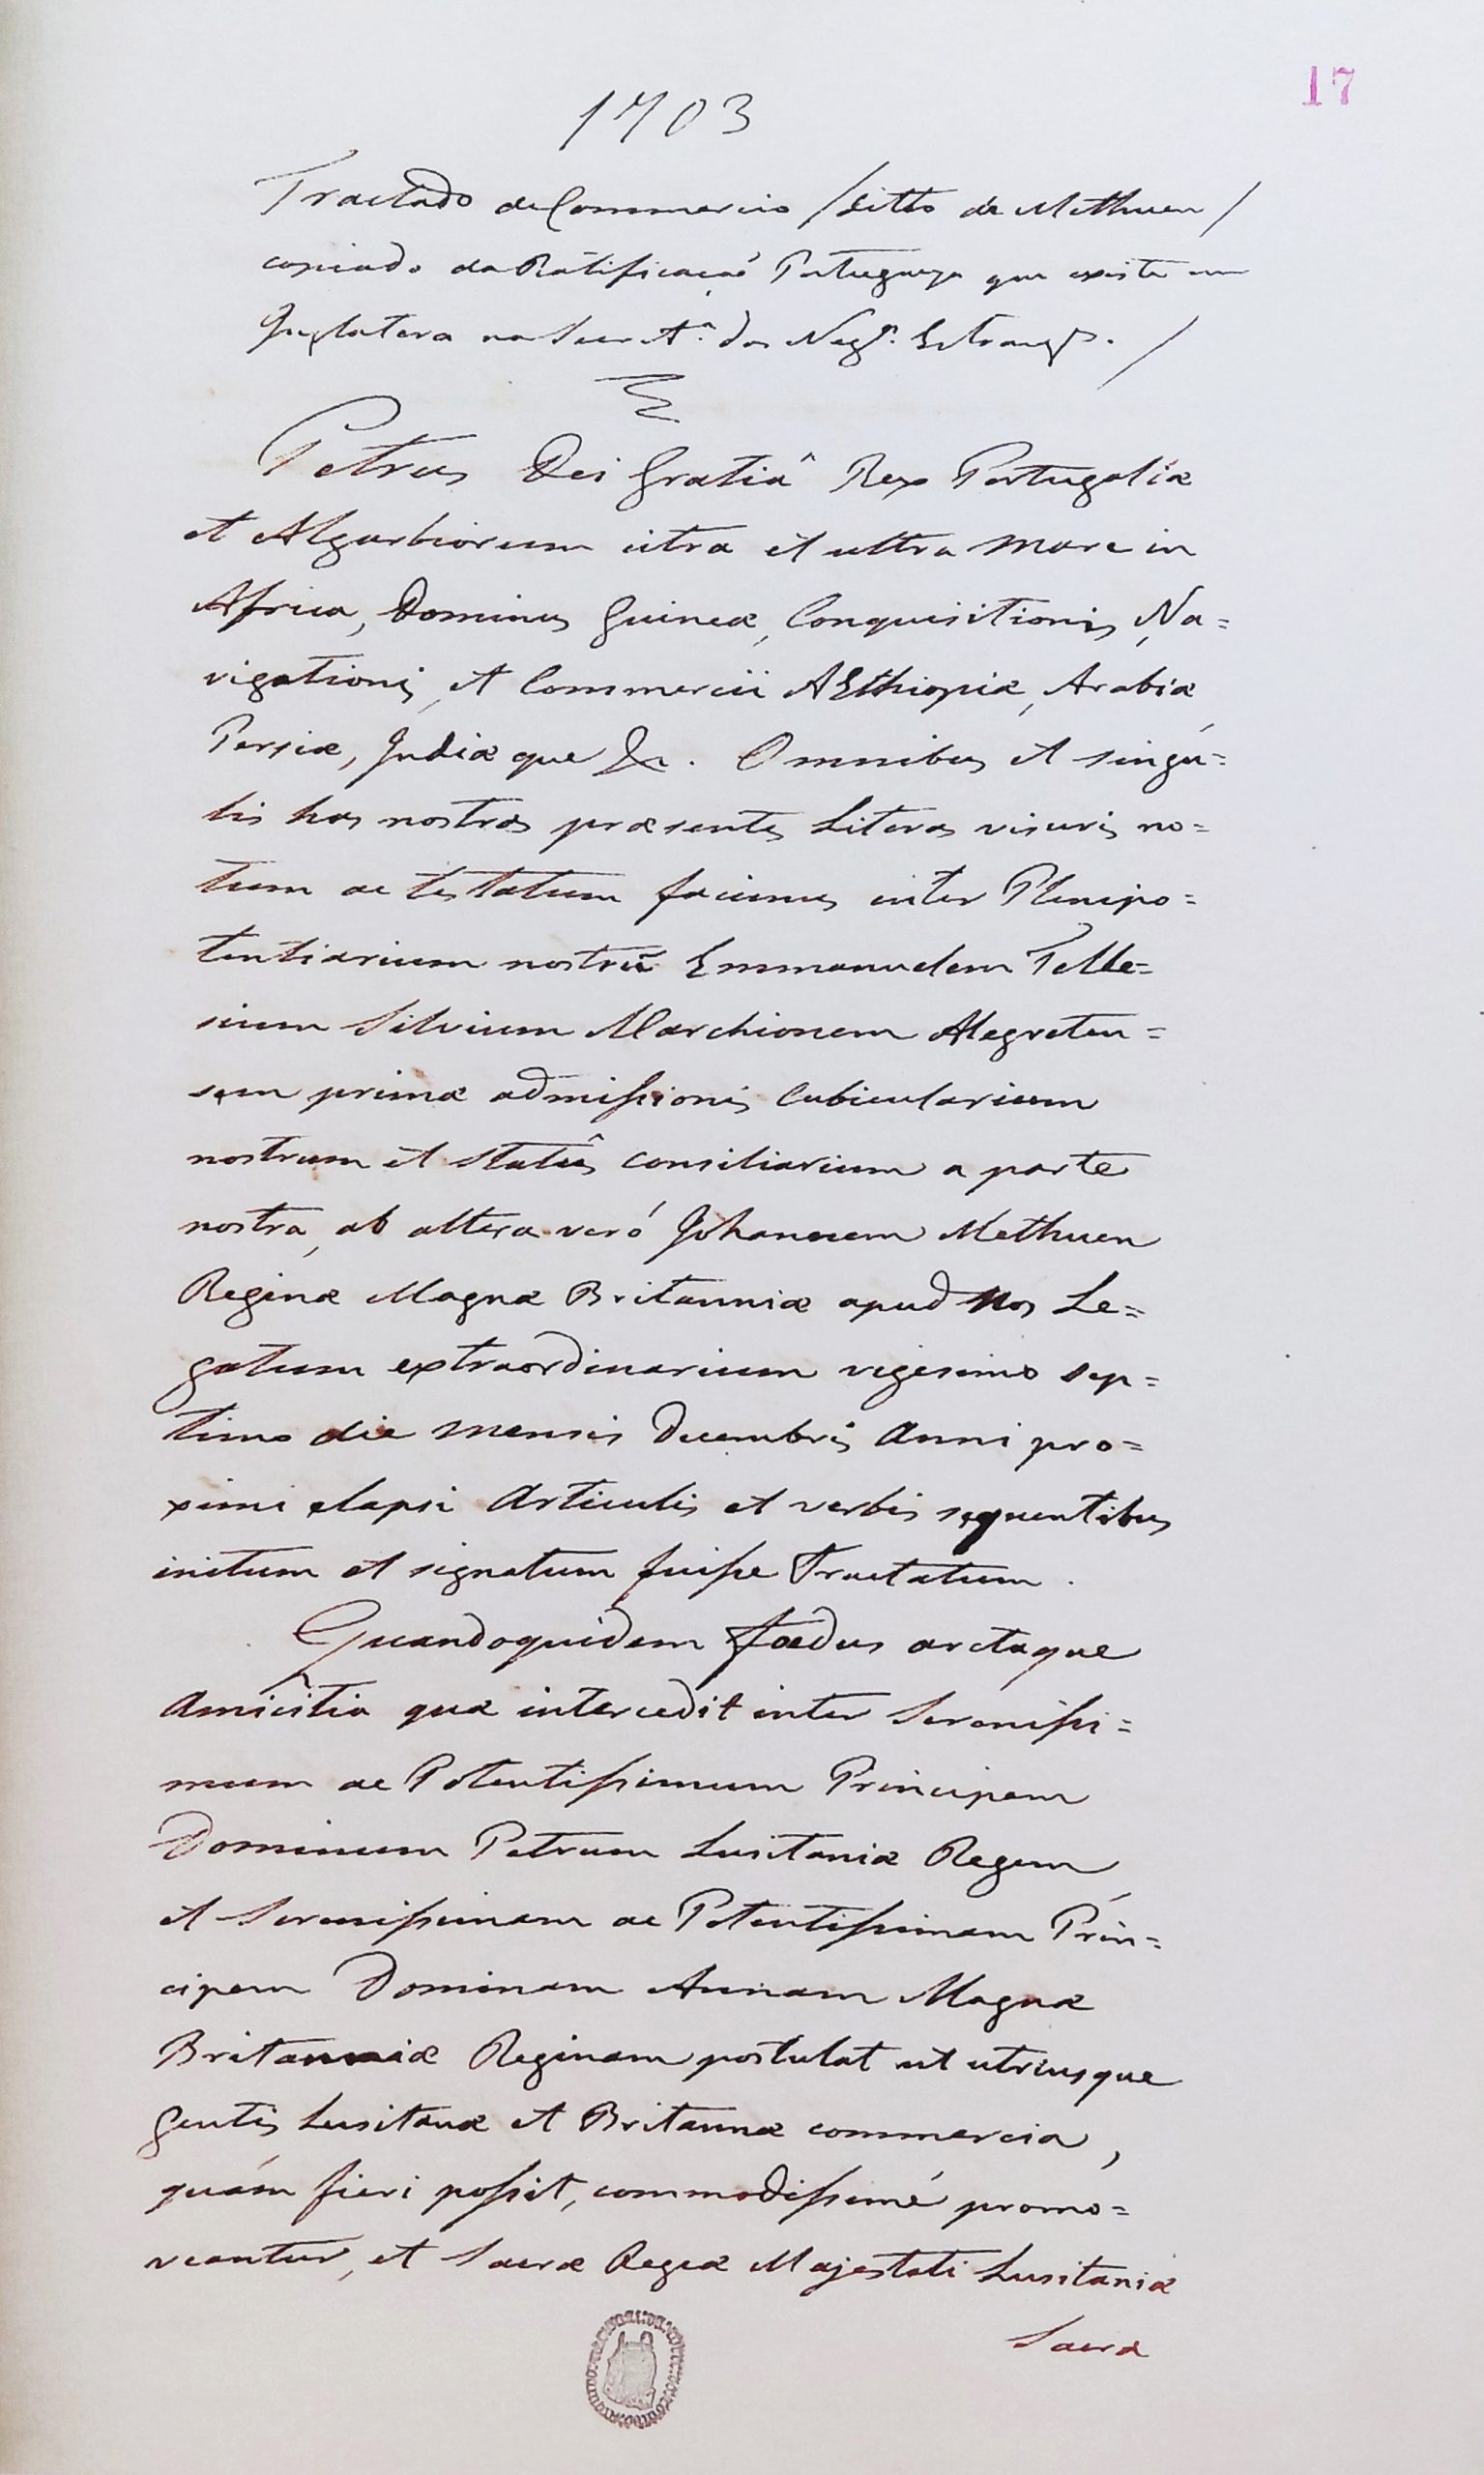 17
1703
Tractado de Commercio / ditto de Methuen /
copiado da Ratificaçaõ Portugueza que existe em
Inglaterra na Secret.ª dos Neg.s Estrang.s. /
Petrus Dei Gratiâ Rex Portugaliæ
et Algarbiorum citra et ultra mare in
Africa, Dominus Guineæ, Conquisitionis, Na=
vigationis, et Commercii AEthiopiæ, Arabiæ
Persiæ, Indiæ que &c. Omnibus et singu=
lis has nostras præsentes Literas visuris no=
tum ac testatum facimus inter Plenipo=
tentiarium nostrū Emmanuelem Telle=
sium Silvium Marchionem Alegreten=
sem primæ admissionis Cubicularium
nostrum et Statûs consiliarium a parte
nostra, ab altera veró Johannem Methuen
Reginæ Magnæ Britanniæ apud Nos Le=
gatum extraordinarium vigesimo sep=
timo die mensis Decembris Anni pro=
ximi elapsi Articulis et verbis sequentibus
initum et signatum fuisse Tractatum.
Quandoquidem Fœdus arctaque
Amicitia quæ intercedit inter Serenissi=
mum ac Potentissimum Principem
Dominum Petrum Lusitaniæ Regem,
et Serenissimam ac Potentissimam Prin=
cipem Dominam Annam Magnæ
Britanniæ Reginam postulat ut utriusque
Gentis Lusitanæ et Britannæ commercia,
quám fieri possit, commodissimé promo=
veantur, et Sacræ Regiæ Majestati Lusitaniæ
Sacræ